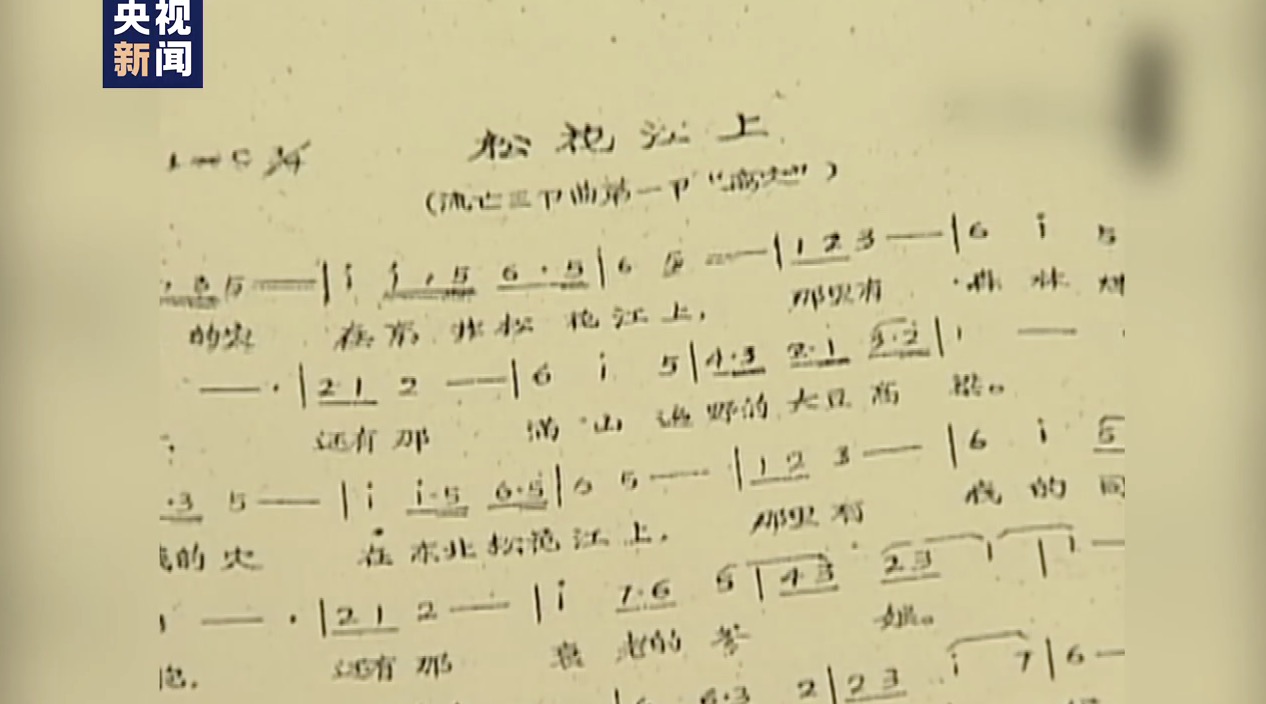 央视
新闻
松花江上
(流亡三部曲第一部"离家")
3 5 — | i i · 5 6 · 5 | 6 5 — | 1 2 3 — | 6 i 5
的家 在东北松花江上, 那里有 森林
— · | 2 1 2 — | 6 i 5 | 4 · 3 2 · 1 5 · 2 | 1 —
还有那 满山遍野的大豆高粱。
· 3 5 — | i i · 5 6 · 5 | 6 5 — | 1 2 3 — | 6 i 5
我的家 在东北松花江上, 那里有 我的同
1 — · | 2 1 2 — | i 7 · 6 5 | 4 3 2 3 1 | 1 —
胞, 还有那 衰老的爹 娘。
6 · 3 2 | 2 3 i 7 | 6 —